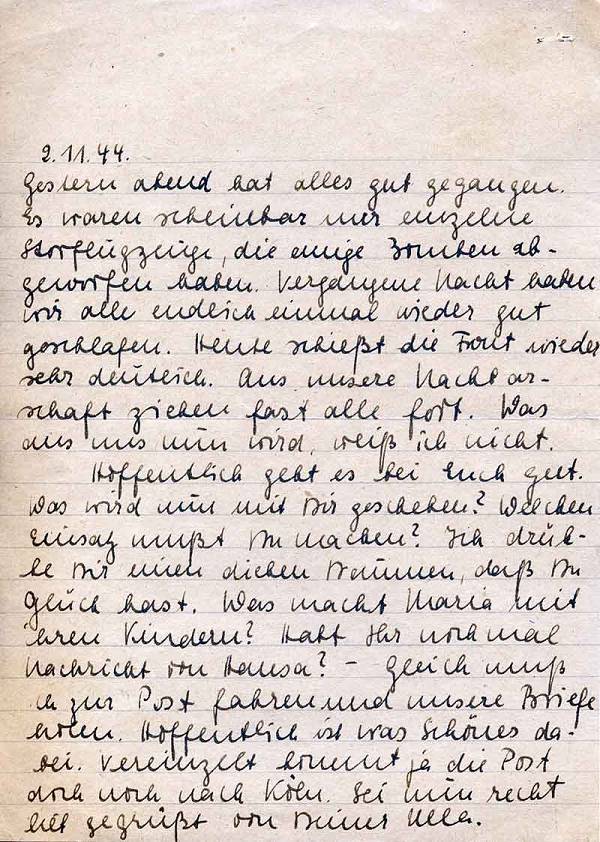 2.11.44.
Gestern abend hat alles gut gegangen.
Es waren scheinbar nur einzelne
Störflugzeuge, die einige Bomben ab-
geworfen haben. Vergangene Nacht haben
wir alle endlich einmal wieder gut
geschlafen. Heute schießt die Front wieder
sehr deutlich. Aus unsere Nachbar-
schaft ziehen fast alle fort. Was
aus uns nun wird, weiß ich nicht.
Hoffentlich geht es bei Euch gut.
Was wird nun mit Dir geschehen? Welchen
Einsatz mußt Du machen? Ich drük-
ke Dir einen dicken Daumen, daß Du
Glück hast. Was macht Maria mit
ihren Kindern? Habt Ihr nochmal
Nachricht von Hansa? - Gleich muß
ich zur Post fahren und unsere Briefe
holen. Hoffentlich ist was Schönes da-
bei. Vereinzelt kommt ja die Post
doch noch nach Köln. Sei nun recht
lieb gegrüßt von Deiner Ulla.